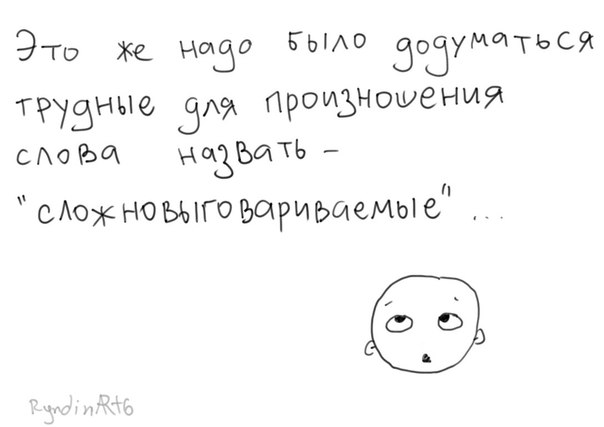 Это же надо было додуматься
трудные для произношения
слова назвать –
"сложновыговариваемые" ...
RyndinArt6